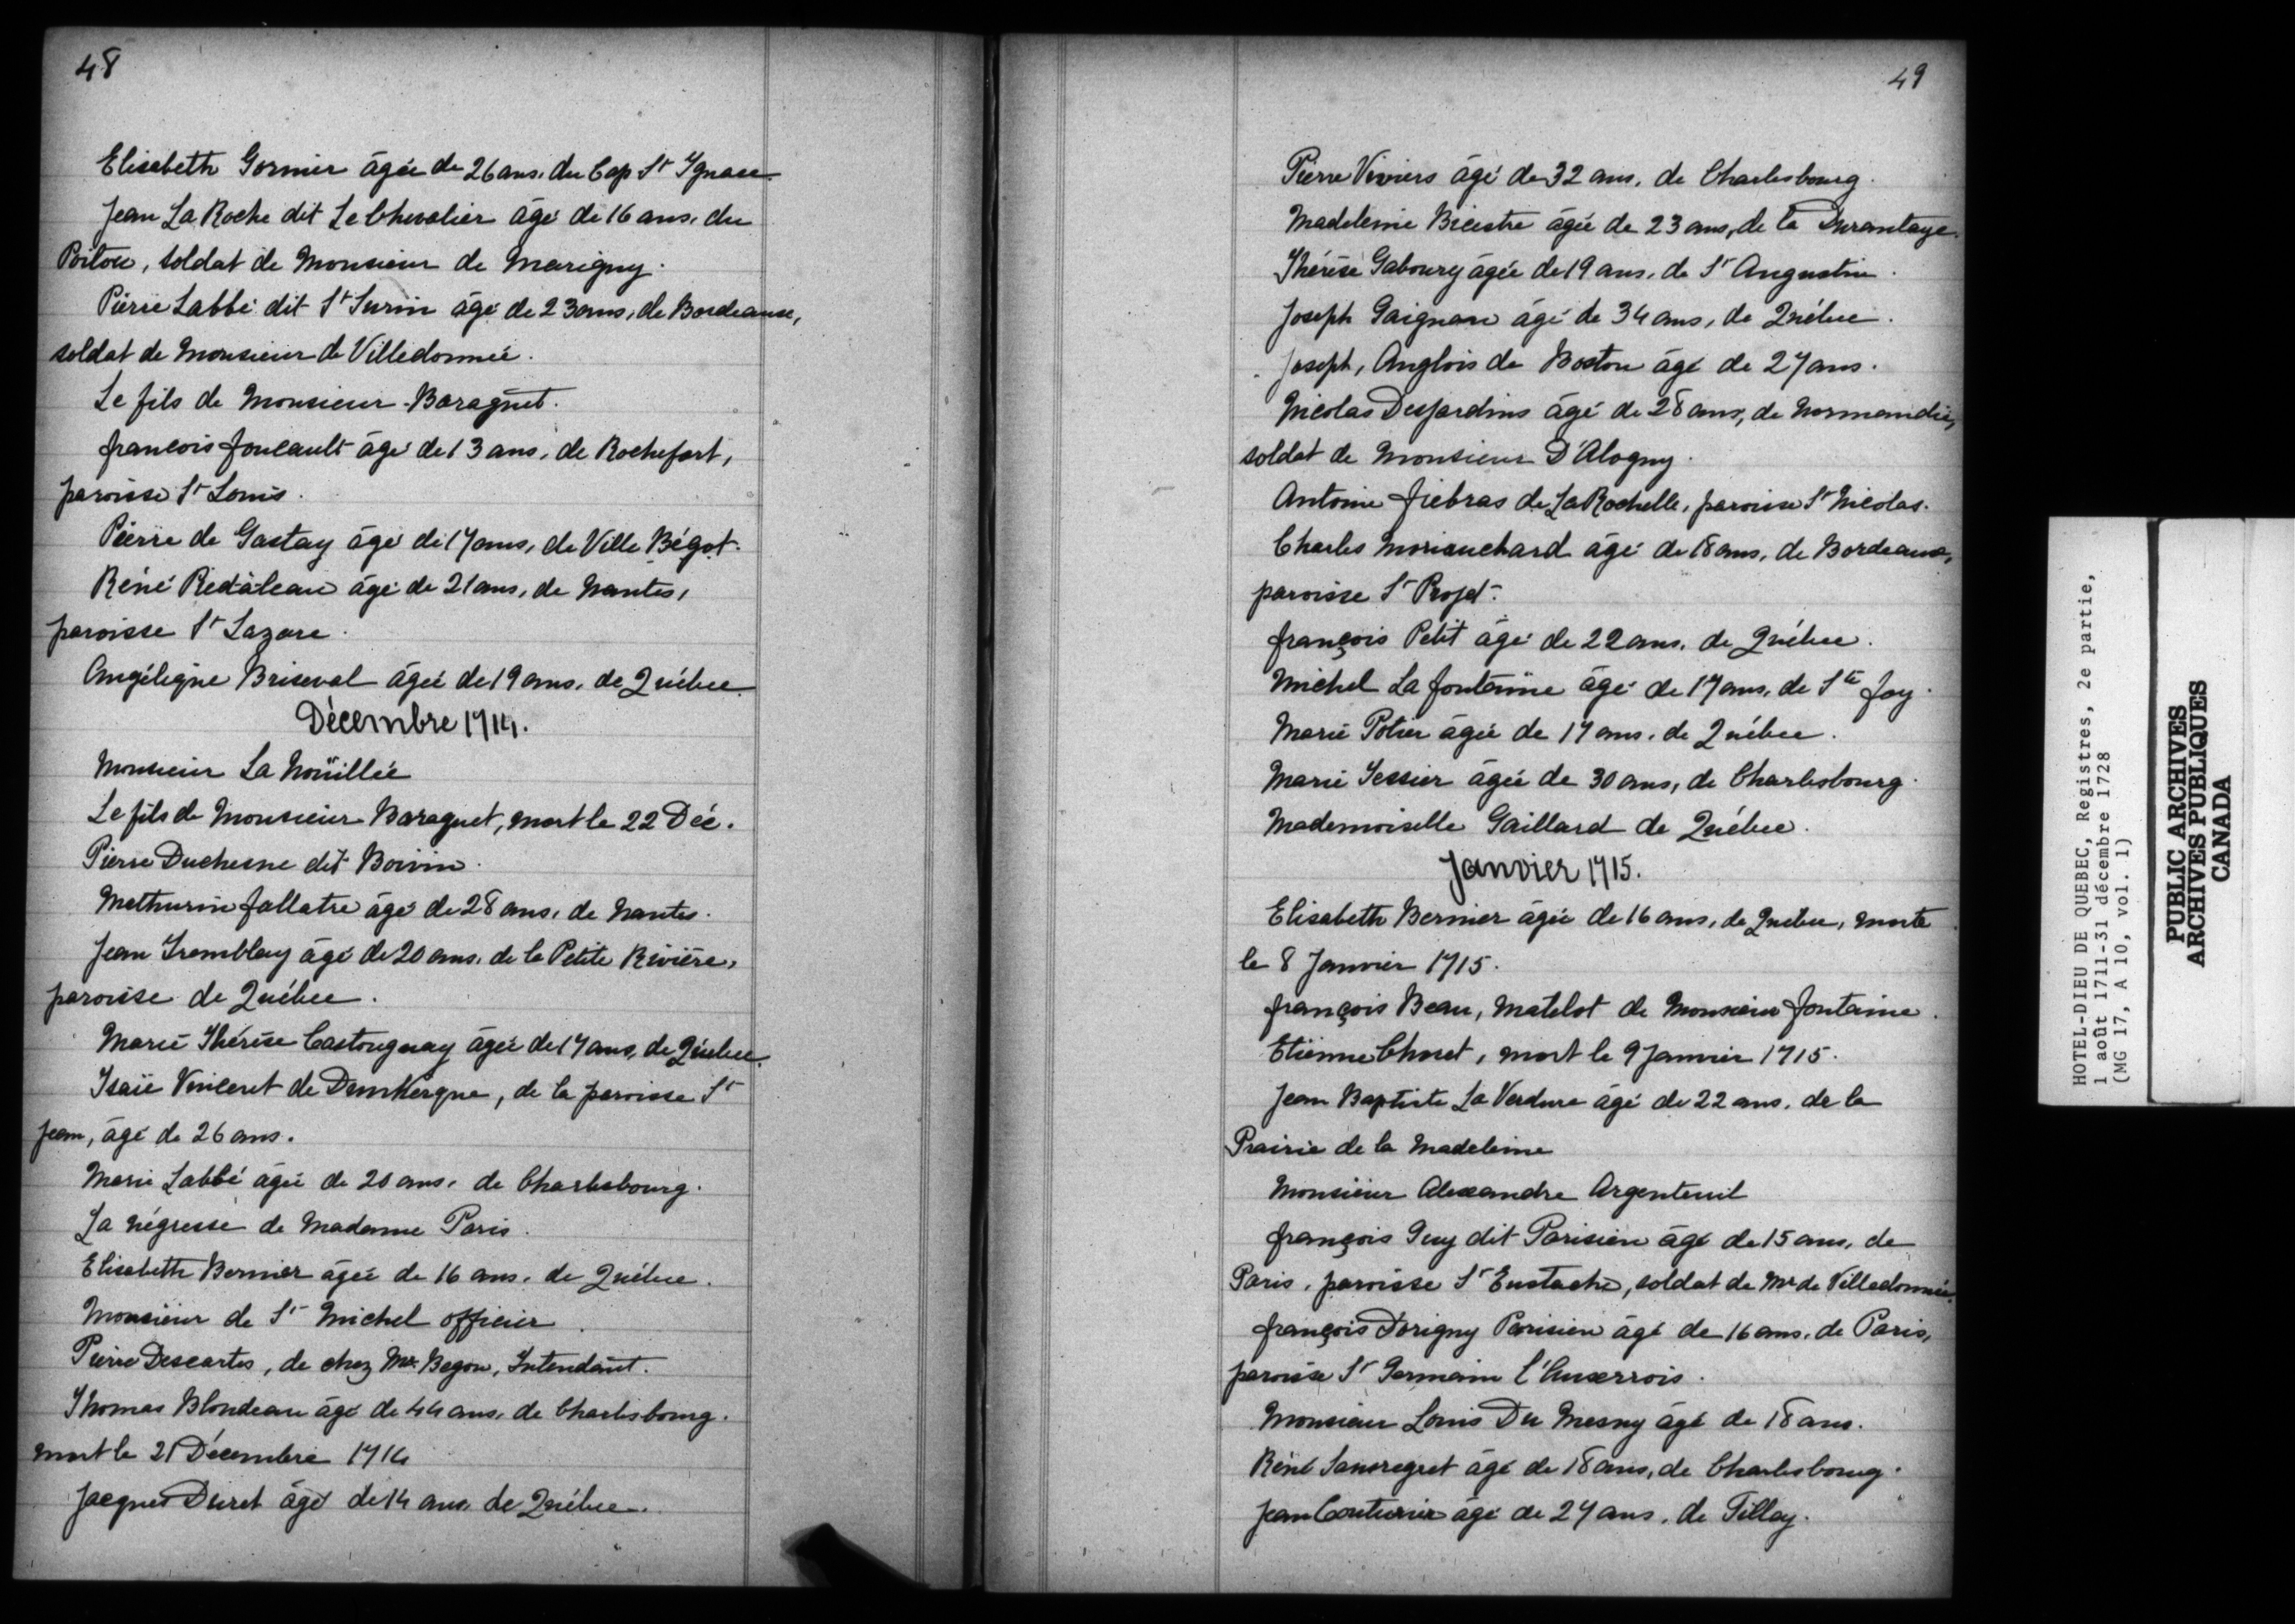 48
Elisabeth Gosmier âgée de 26 ans, du Cap St Ignace.
Jean La Roche dit Le Chevalier âgé de 16 ans, du
Poitou, soldat de Monsieur de Marigny.
Pierre Labbé dit St Surin âgé de 23 ans, de Bordeaux,
soldat de Monsieur de Villedonnée.
Le fils de Monsieur Baraguet.
francois foucault âgé de 13 ans, de Rochefort,
paroisse St Louis.
Pierre de Gastay âgé de 17 ans, de Ville Bégot.
Réné Redàleau âgé de 21 ans, de Nantes,
paroisse St Lazare.
Angélique Briseval âgée de 19 ans, de Québec.
Décembre 1714.
Monsieur La Noüillée
Le fils de Monsieur Baraguet, mort le 22 Déc.
Pierre Duchesne dit Boivin.
Mathurin fallatre âgé de 28 ans, de Nantes.
Jean Tremblay âgé de 20 ans, de la Petite Rivière,
paroisse de Québec.
Marie Thérèse Castonguay âgée de 17 ans, de Québec.
Isaïe Vinceret de Dunkerque, de la paroisse St
Jean, âgé de 26 ans.
Marie Labbé âgée de 20 ans, de Charlesbourg.
La négresse de Madame Paris.
Elisabeth Bernier âgée de 16 ans, de Québec.
Monsieur de St Michel officier.
Pierre Descartes, de chez Mr. Begon, Intendant.
Thomas Blondeau âgé de 44 ans, de Charlesbourg.
mort le 21 Décembre 1714
Jacques Duret âgé de 14 ans, de Québec.
49
Pierre Viviers âgé de 32 ans, de Charlesbourg.
Madeleine Bricstre âgée de 23 ans, de la Durantaye.
Thérèse Gaboury âgée de 19 ans, de St Augustin.
Joseph Gaignan âgé de 34 ans, de Québec.
Joseph, Anglois de Boston âgé de 27 ans.
Nicolas Desjardins âgé de 28 ans, de Normandie,
soldat de Monsieur D'Alogny.
Antoine fiebras de La Rochelle, paroisse St Nicolas.
Charles Moriauchard âgé de 18 ans, de Bordeaux,
paroisse St Projet.
françois Petit âgé de 22 ans, de Québec.
Michel La fontaine âgé de 17 ans, de Ste foy.
Marie Potier âgée de 17 ans, de Québec.
Marie Tessier âgée de 30 ans, de Charlesbourg.
Mademoiselle Gaillard de Québec.
Janvier 1715.
Elisabeth Bernier âgée de 16 ans, de Québec, morte
le 8 Janvier 1715.
françois Beau, matelot de Monsieur fontaine.
Etienne Choret, mort le 9 Janvier 1715.
Jean Baptiste La Verdure âgé de 22 ans, de la
Prairie de la Madeleine
Monsieur Alexandre Argenteuil
françois Guy dit Parisien âgé de 15 ans, de
Paris, paroisse St Eustache, soldat de Mr de Villedonnée.
françois Dorigny Parisien âgé de 16 ans, de Paris,
paroisse St Germain l'Auxerrois.
Monsieur Louis Du Mesny âgé de 18 ans.
Réné Sansregret âgé de 18 ans, de Charlesbourg.
Jean Couturier âgé de 24 ans, de Tillay.
HOTEL-DIEU DE QUEBEC, Registres, 2e partie,
1 août 1711-31 décembre 1728
(MG 17, A 10, vol. 1)
PUBLIC ARCHIVES
ARCHIVES PUBLIQUES
CANADA